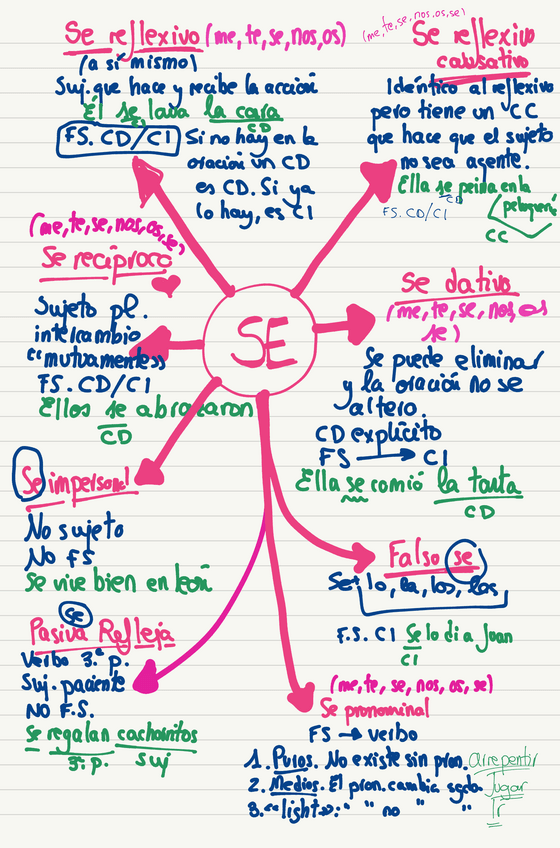 Se reflexivo (me, te, se, nos, os)
(a sí mismo)
Suj. que hace y recibe la acción
Él se lava la cara
CD
FS. CD/CI
Si no hay en la
oración un CD
es CD. Si ya
lo hay, es CI
(me, te, se, nos, os, se)
Se reflexivo
causativo
Idéntico al reflexivo
pero tiene un CC
que hace que el sujeto
no sea agente.
Ella se peina en la
CD
peluquería
FS. CD/CI
CC
(me, te, se, nos, os, se)
Se recíproco
Sujeto pl.
intercambio
"mutuamente"
FS. CD/CI
Ellos se abrazaron
CD
SE
Se dativo
(me, te, se, nos, os
se)
Se puede eliminar
y la oración no se
altera.
CD explícito
FS → CI
Ella se comió la tarta
CD
Se impersonal
No sujeto
No FS
Se vive bien en León
Falso se
Se + lo, la, los, las
F.S. CI Se lo di a Juan
CI
se
Pasiva Refleja
Verbo 3.ª p.
Suj. paciente
NO F.S.
Se regalan cachorritos
3.ª p. Suj
(me, te, se, nos, os, se)
Se pronominal
FS → verbo
1. Puros. No existe sin pron. arrepentir
2. Medios. El pron. cambia sgdo. Jugar
3. "light": " " no " " Ir